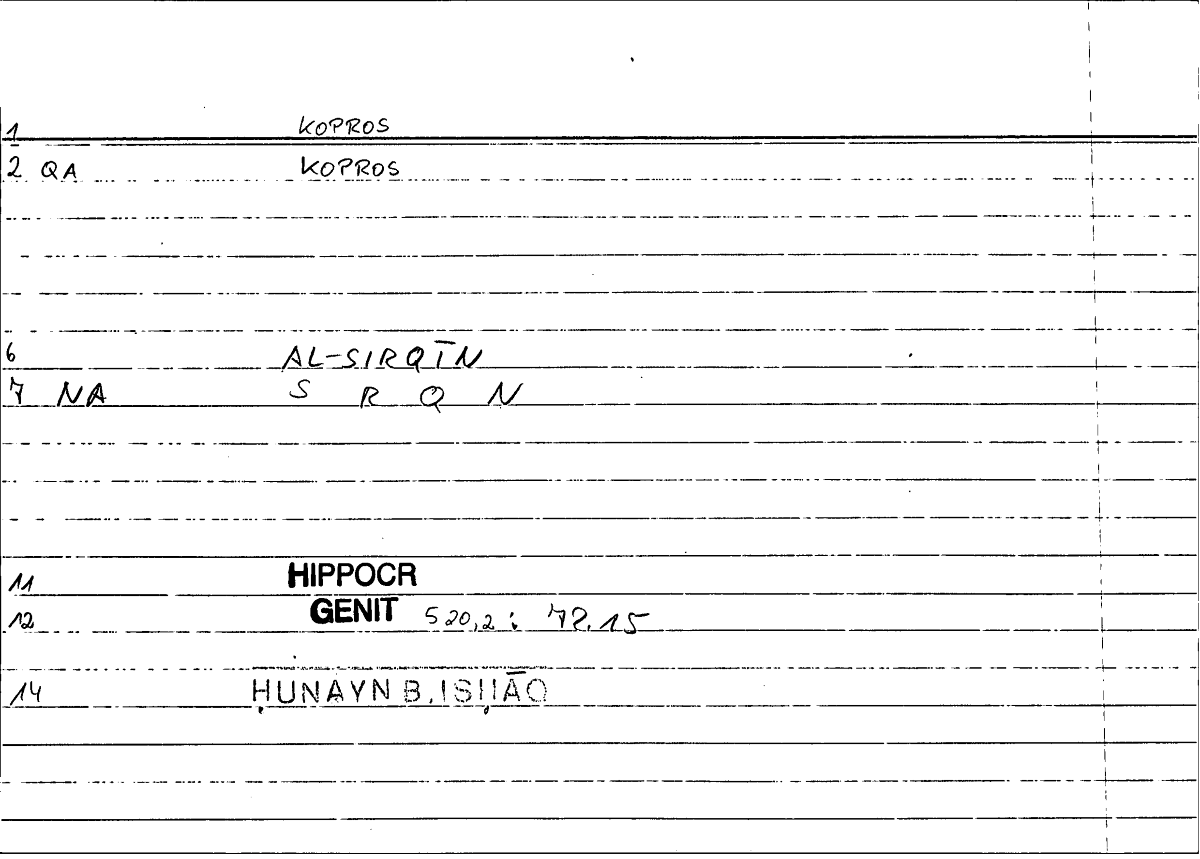 1 KOPROS
2 QA KOPROS
6 AL-SIRQĪN
7 NA S R Q N
11 HIPPOCR
12 GENIT 520,2 : 72.15
14 ḤUNAYN B. ISḤĀQ